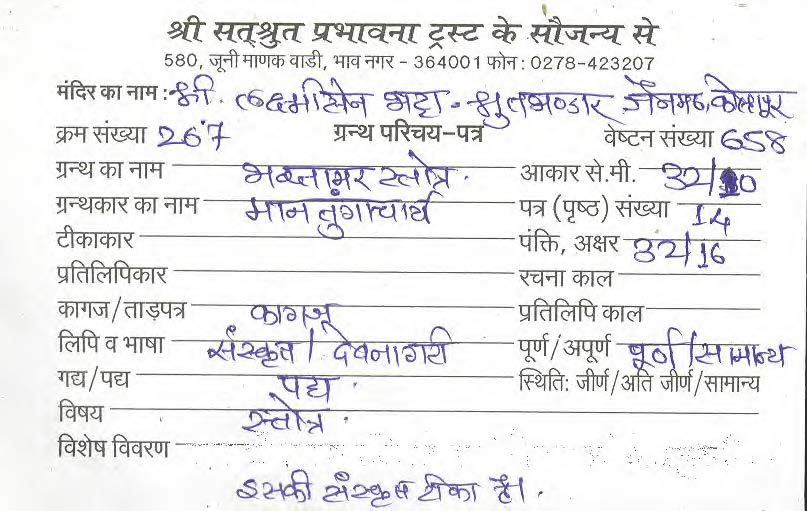 श्री सत्श्रुत प्रभावना ट्रस्ट के सौजन्य से
580, जूनी माणक वाडी, भाव नगर - 364001 फोन : 0278-423207
मंदिर का नाम : श्री. लक्ष्मीसेन भट्टा. श्रुतभण्डार जैनमठ, कोल्हापूर
क्रम संख्या 267 ग्रन्थ परिचय-पत्र वेष्टन संख्या 658
ग्रन्थ का नाम भक्तामर स्तोत्र. आकार से.मी. 32/10
ग्रन्थकार का नाम मानतुंगाचार्य पत्र (पृष्ठ) संख्या 14
टीकाकार पंक्ति, अक्षर 32/16
प्रतिलिपिकार रचना काल
कागज/ताड़पत्र कागज प्रतिलिपि काल
लिपि व भाषा संस्कृत / देवनागरी पूर्ण/अपूर्ण पूर्ण/सामान्य
गद्य/पद्य पद्य स्थिति: जीर्ण/अति जीर्ण/सामान्य
विषय स्तोत्र.
विशेष विवरण
इसकी संस्कृत टीका है।.